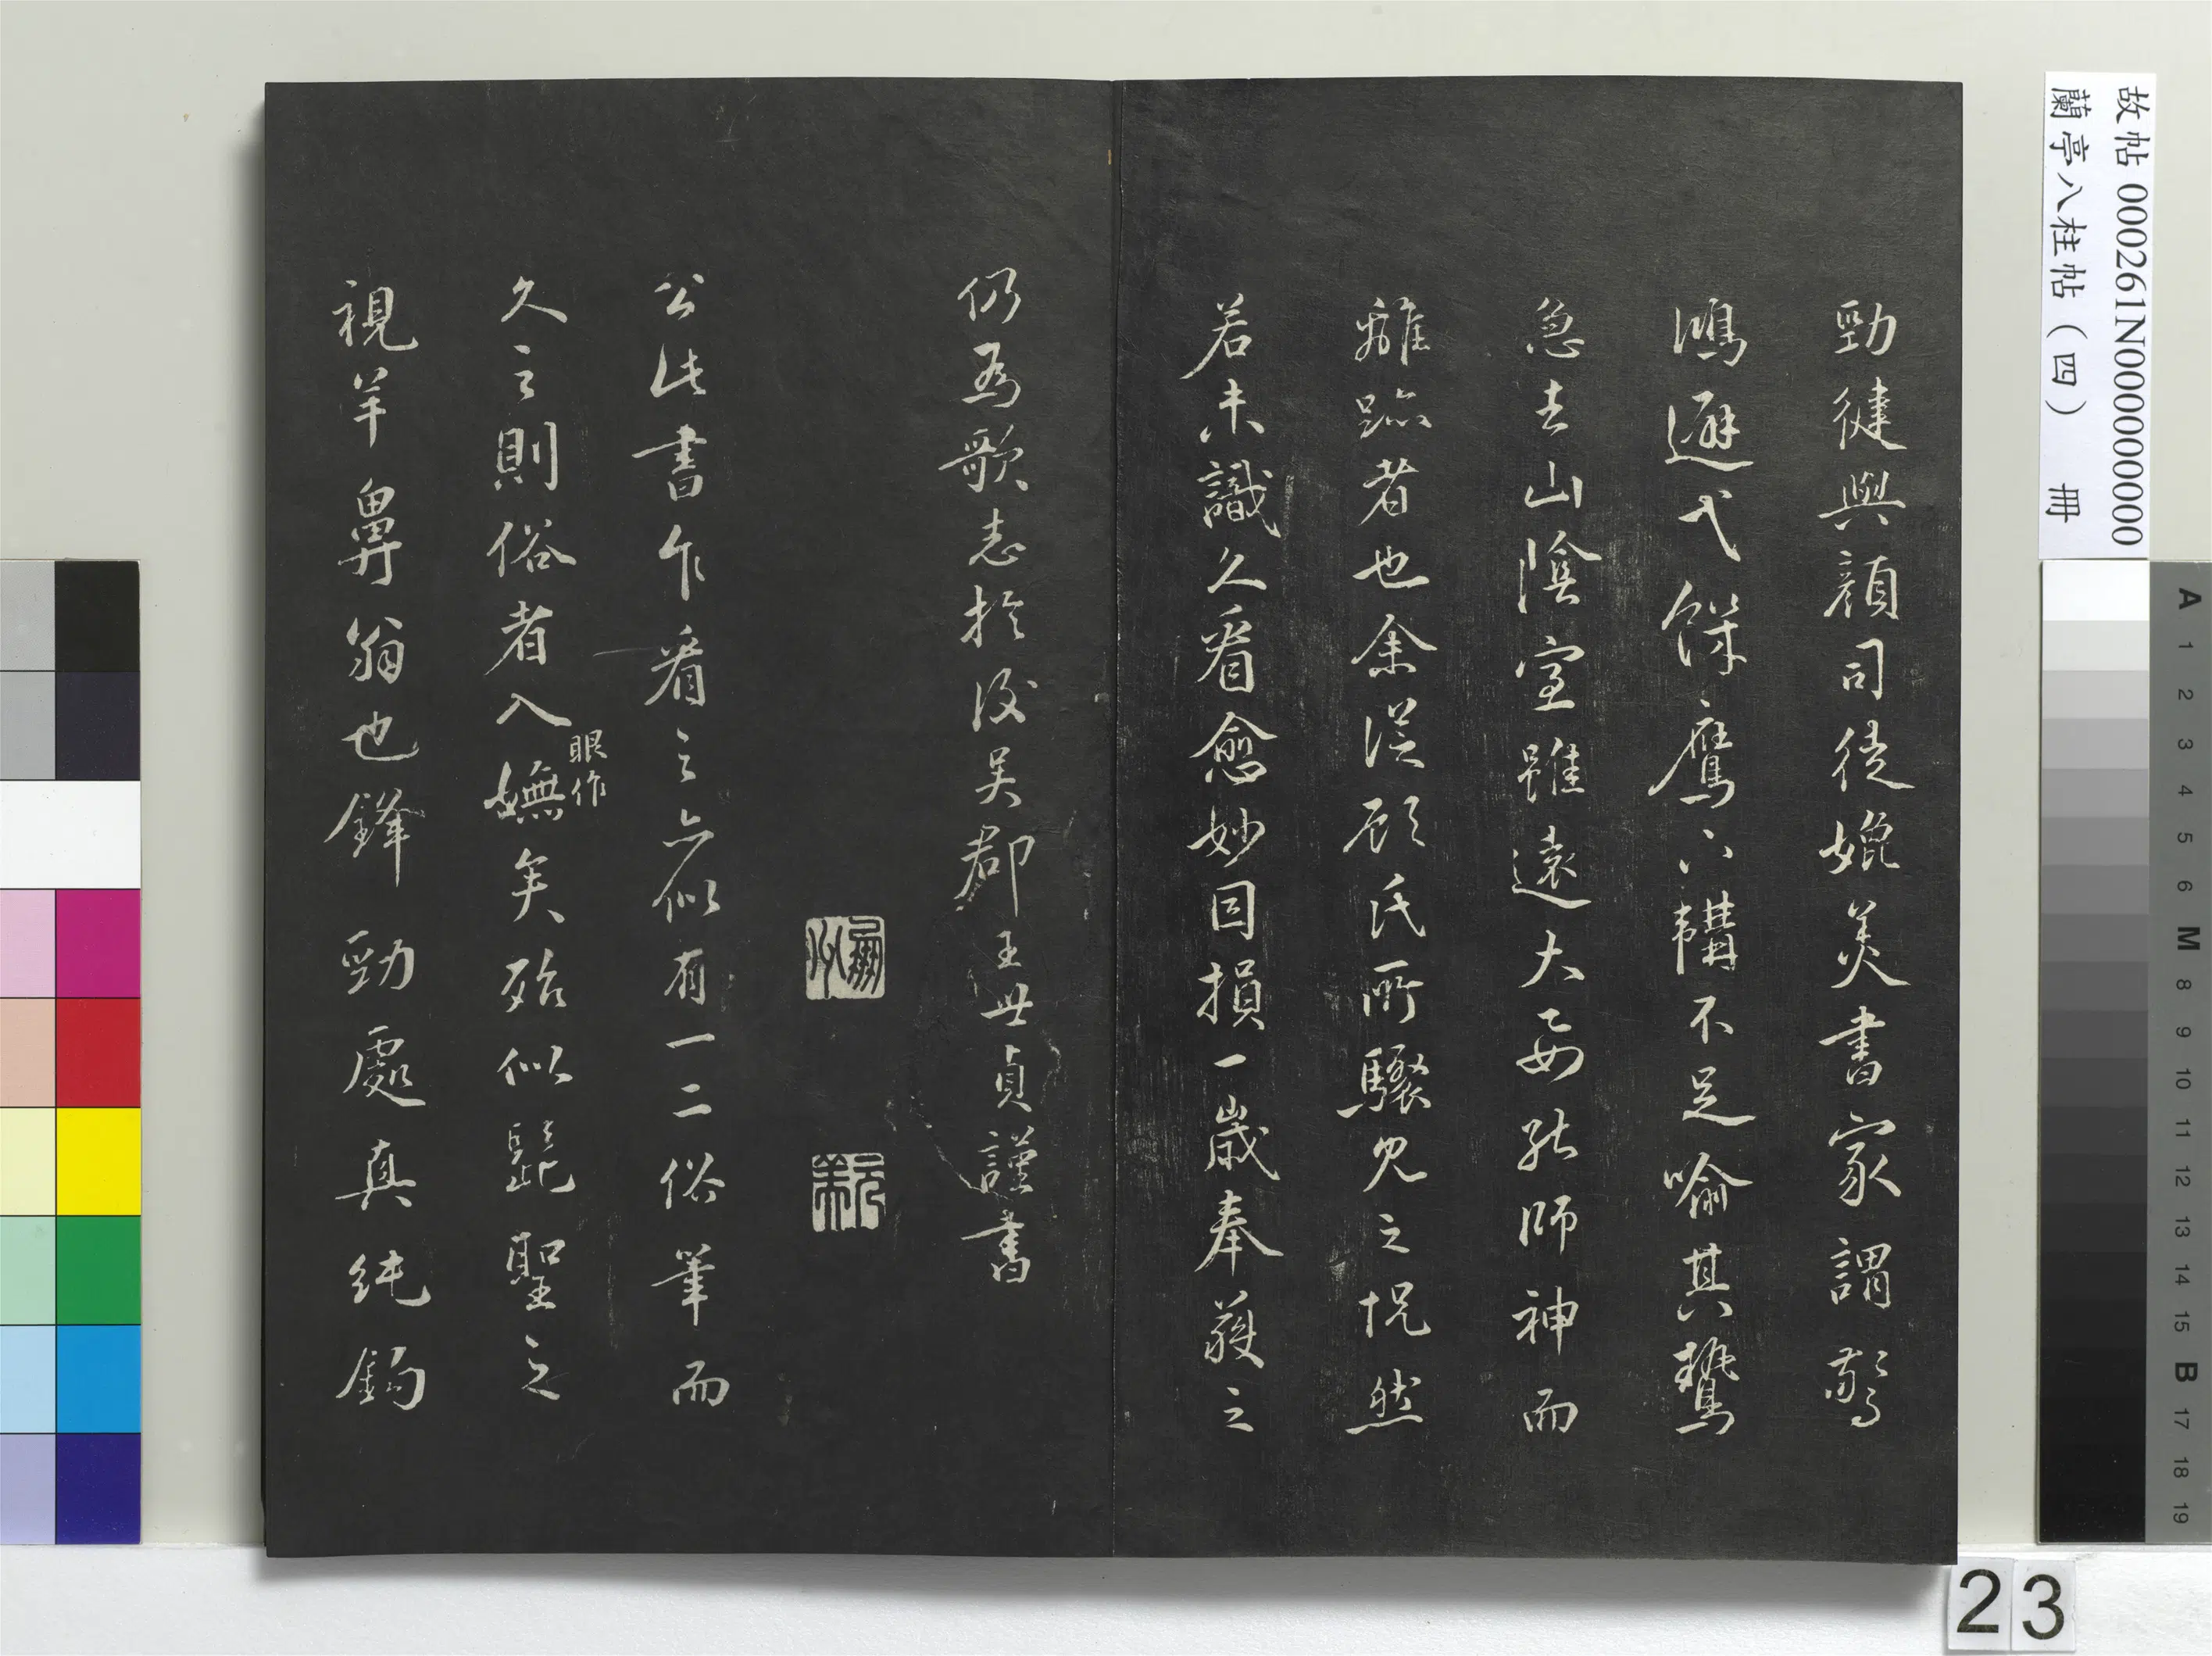 故帖 000261N000000000
蘭亭八柱帖（四） 冊
勁健與顏司徒媲美書家謂驚
鴻避弋饑鷹下韝不足喻其鷙
急去山陰室雖遠大要能師神而
離跡者也余從顧氏所驟見之怳然
若未識久看愈妙因損一歲奉獲之
仍為歌志於後吳郡王世貞謹書
公此書乍看之亦似有一二俗筆而
久之則俗者入嫵矣殆似髭聖之
眼作
視羊鼻翁也鋒勁處真純鈎
A 1 2 3 4 5 6 M 8 9 10 11 12 13 14 15 B 17 18 19
23